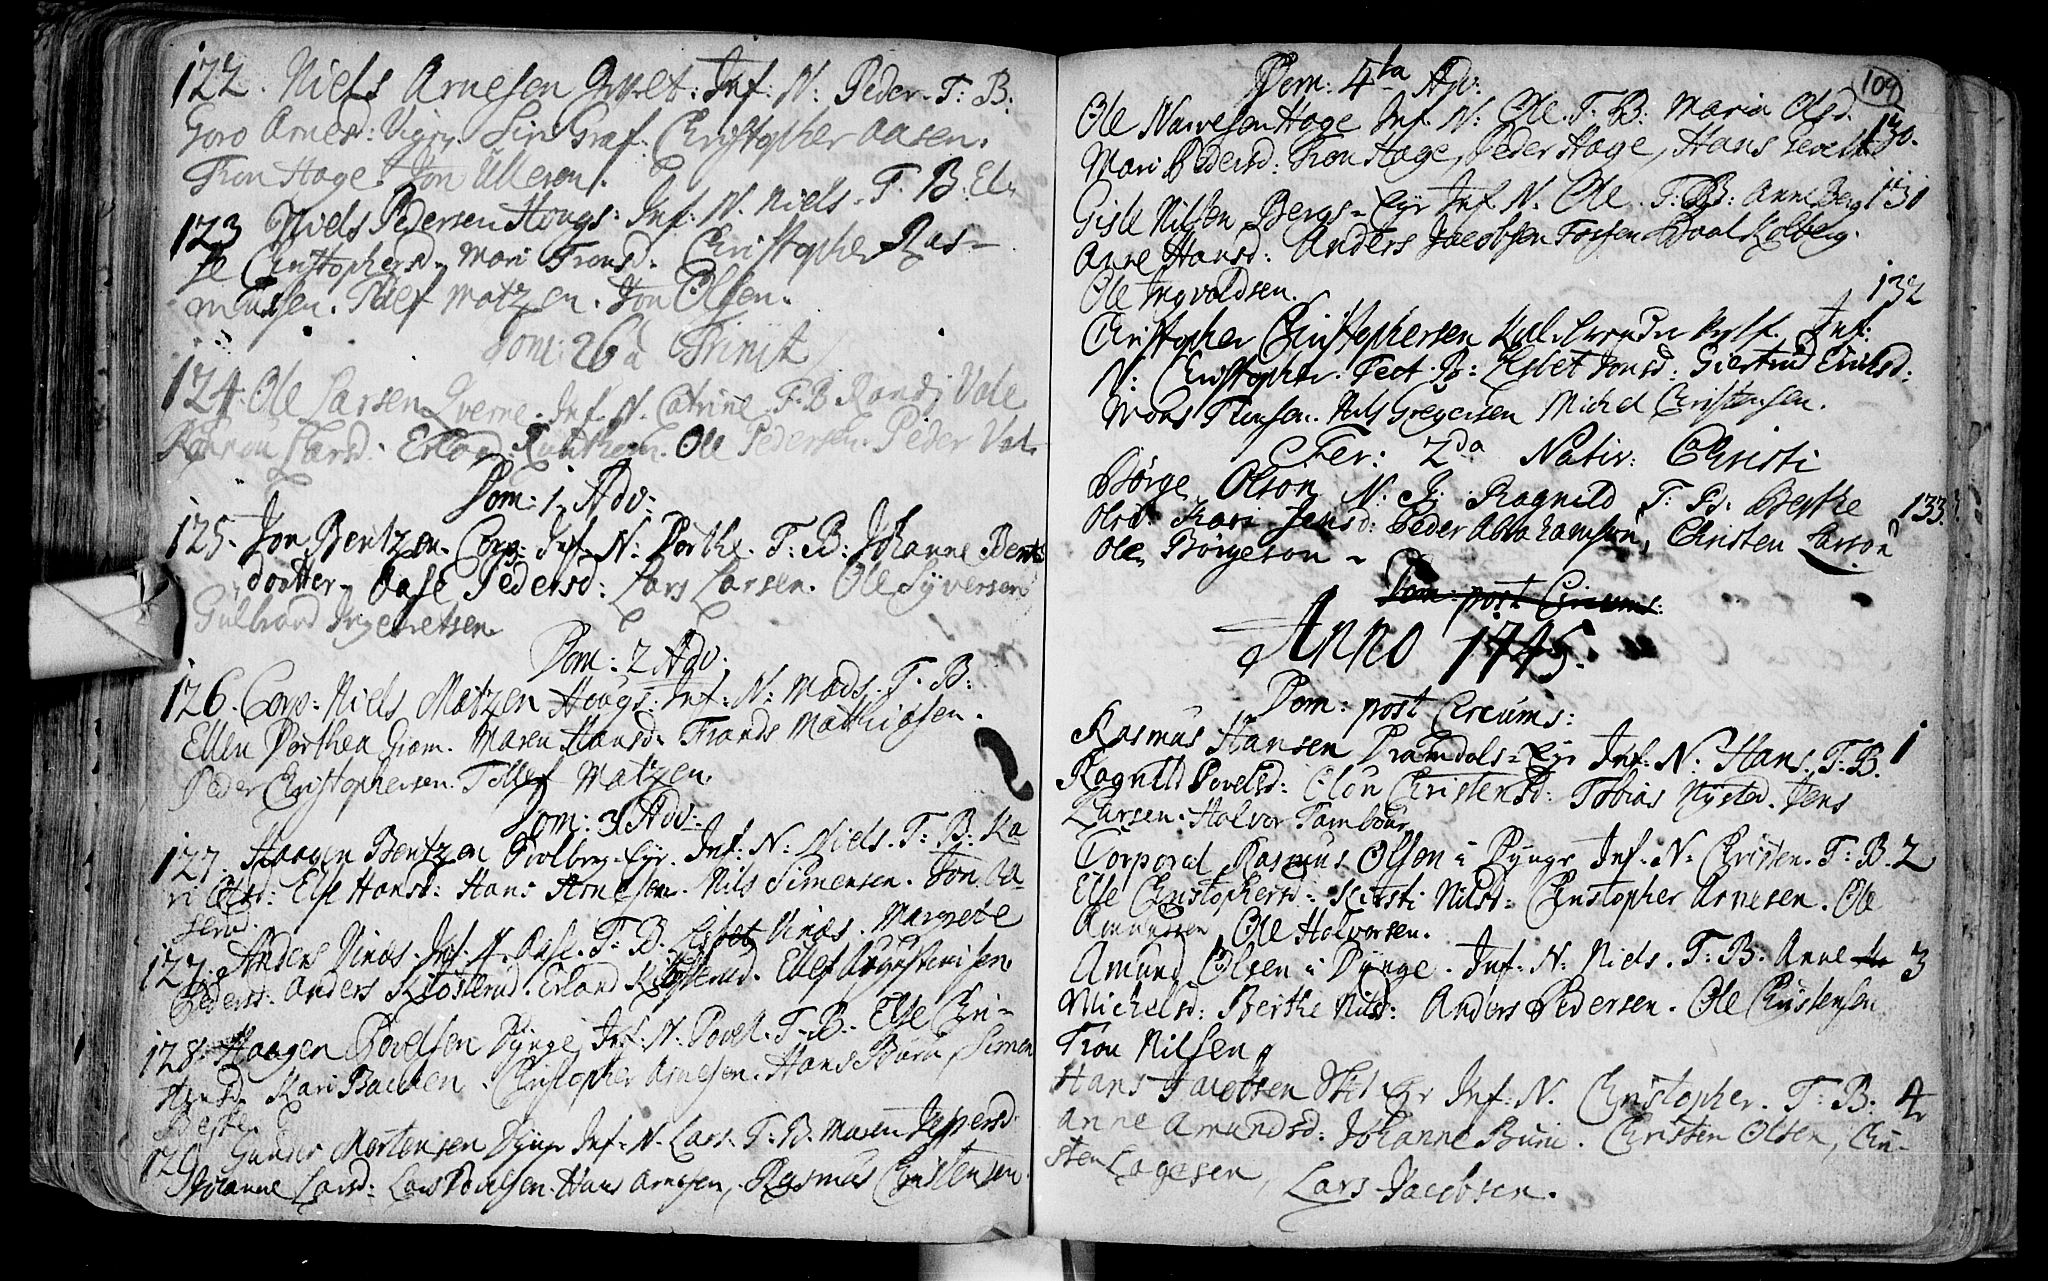 122. Niels Arnesen Inf: N: Peder. T: B:
Goro Arnesd: Siri Graf. Christopher Aasen.
Tron Hage. Jon Ulleren.
123 Niels Pedersen Hougs: Inf: N. Niels. T. B. El-
se Christophersd. Mari Tronsd. Christopher Ras-
mussen. Tllef Matzen. Jon Olsen.
Dom: 26 a Trinit
124. Ole Larsen Inf. N. Catrine. T. B. Rand: Vale
Larsd. Ole Pedersen. Peder Val-
Dom: 1. Adv:
125. Jon Bentzen. Corp: Inf. N: Dorthe. T: B: Johanne Bents
daatter, Aase Pedersd: Lars Larsen. Ole Syversen
Gulbrand Ingebretsen
Dom: 2 Adv:
126. Corp: Niels Matzen Hougs: Inf: N: Mads. T. B:
Ellen Dorthea Gram. Maren Hansd. Frands Mathiasen.
Peder Christophersen. Tollef Matzen.
Dom: 3 Adv:
127. Haagen Bentzen Inf: N: Niels. T: B: Ka
ri Else Hansd: Hans Arnesen. Nils Simensen. Jon La-
sen.
127. Anders Vinæs. Inf. N. Aase. T: B. Lisbet Vinæs. Margrete
Pedersd: Anders Klosterud. Erland Klosterud. Ellef Augustinisen
128. Haagen Povelsen Dynge Inf. N. Povel. T. B. Else Chri-
stensd. Kari Backen. Christopher Arnesen. Hans Buru, Simen
Beske.
129. Gunder Mortensen Dynge Inf: N. Lars. T. B. Maren Jeppersd
Johanne Larsd: Lars Poulsen. Hans Arnesen, Rasmus Christensen.
109
Dom: 4ta Adv:
Ole Narvesen Hage Inf. N: Ole. T. B: Maria Olsd. 130.
Mari Pedersd: Tron Hage, Peder Hage, Hans
Gisle Nilsen Bergs-Eyr Inf. N. Ole. T: B: Anne Berg 131
Anne Hansd: Anders Jacobsen Fossen Kolberg.
Ole Ingvoldsen. 132
Christopher Christophersen Inf:
N: Christopher. Test. B: Lisbet Jonsd: Giertrud Erichsd:
Mons Nils Gregersen Michel Christensen.
Fer: 2da Nativ: Christi
Børge Olson N. J: Ragnild T: B: Berthe 133.
Olsd: Kari Jensd: Peder Abbrahamson, Christen Larson
Ole Børgeson -
Dom: post Circums:
Anno 1745.
Dom: post Circums:
Rasmus Hansen Dramdals-Eyr Inf: N. Hans. T: B. 1
Ragnild Povelsd: Olou Christensd: Tobias Nysted. Jens
Larsen. Halvor Tambour,
Corporal Rasmus Olsen i Dynge Inf. N: Christen. T: B. 2
Else Christophersd: Kirsti Nilsd: Christopher Arnesen. Ole
Amundsen, Ole Halvorsen.
Amund Olsen i Dynge. Inf: N: Niels. T: B: Anne 3
Michelsd: Berthe Nilsd: Anders Pedersen. Ole Christensen
Tron Nilsen,
Hans Jacobsen Eyr Inf: N. Christopher. T: B: 4
Anne Amundsd: Johanne Buru. Christen Olsen, Chri-
sten Lagesen, Lars Jacobsen.